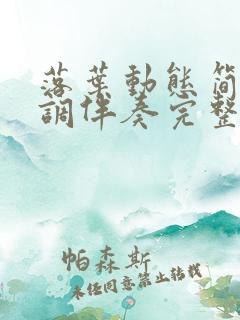 落葉動態簡
調伴奏完整
帕森斯
未经同意禁止转载